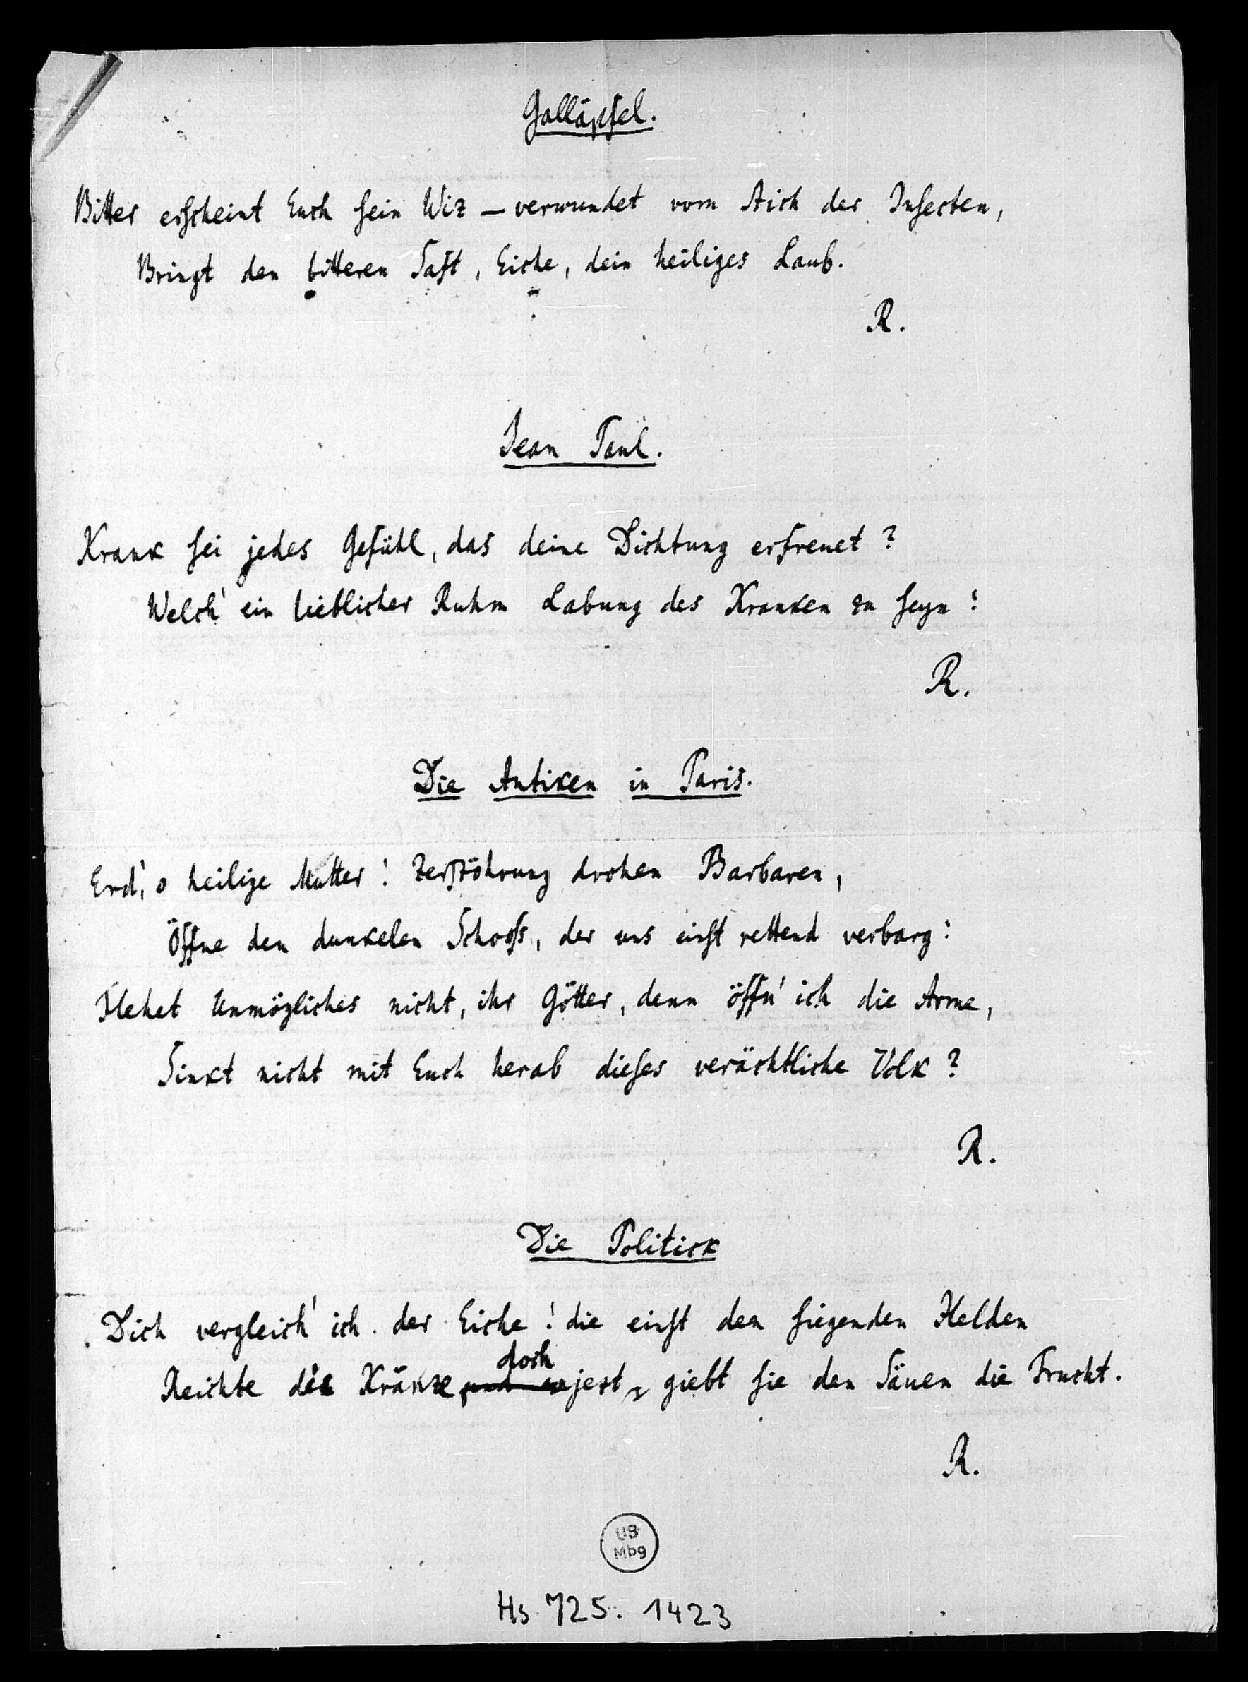 Galläpfel.
Bitter erscheint Euch sein Wiz — verwundet vom Stich der Insecten,
Bringt den bitteren Saft, Eiche, dein heiliges Laub.
R.
Jean Paul.
Krank sei jedes Gefühl, das deine Dichtung erfreuet?
Welch' ein lieblicher Ruhm Labung des Kranken zu seyn!
R.
Die Antiken in Paris.
Erd', o heilige Mutter! Zerstöhrung drohen Barbaren,
Öffne den dunkelen Schooß, der uns einst rettend verbarg!
Flehet Unmögliches nicht, ihr Götter, denn öffn' ich die Arme,
Sinkt nicht mit Euch herab dieses verächtliche Volk?
R.
Die Politick
Dich vergleich' ich der Eiche! die einst den siegenden Helden
doch
Reichte die Kränze, und jezt, giebt sie den Säuen die Frucht.
R.
UB
Mbg
Hs 725. 1423